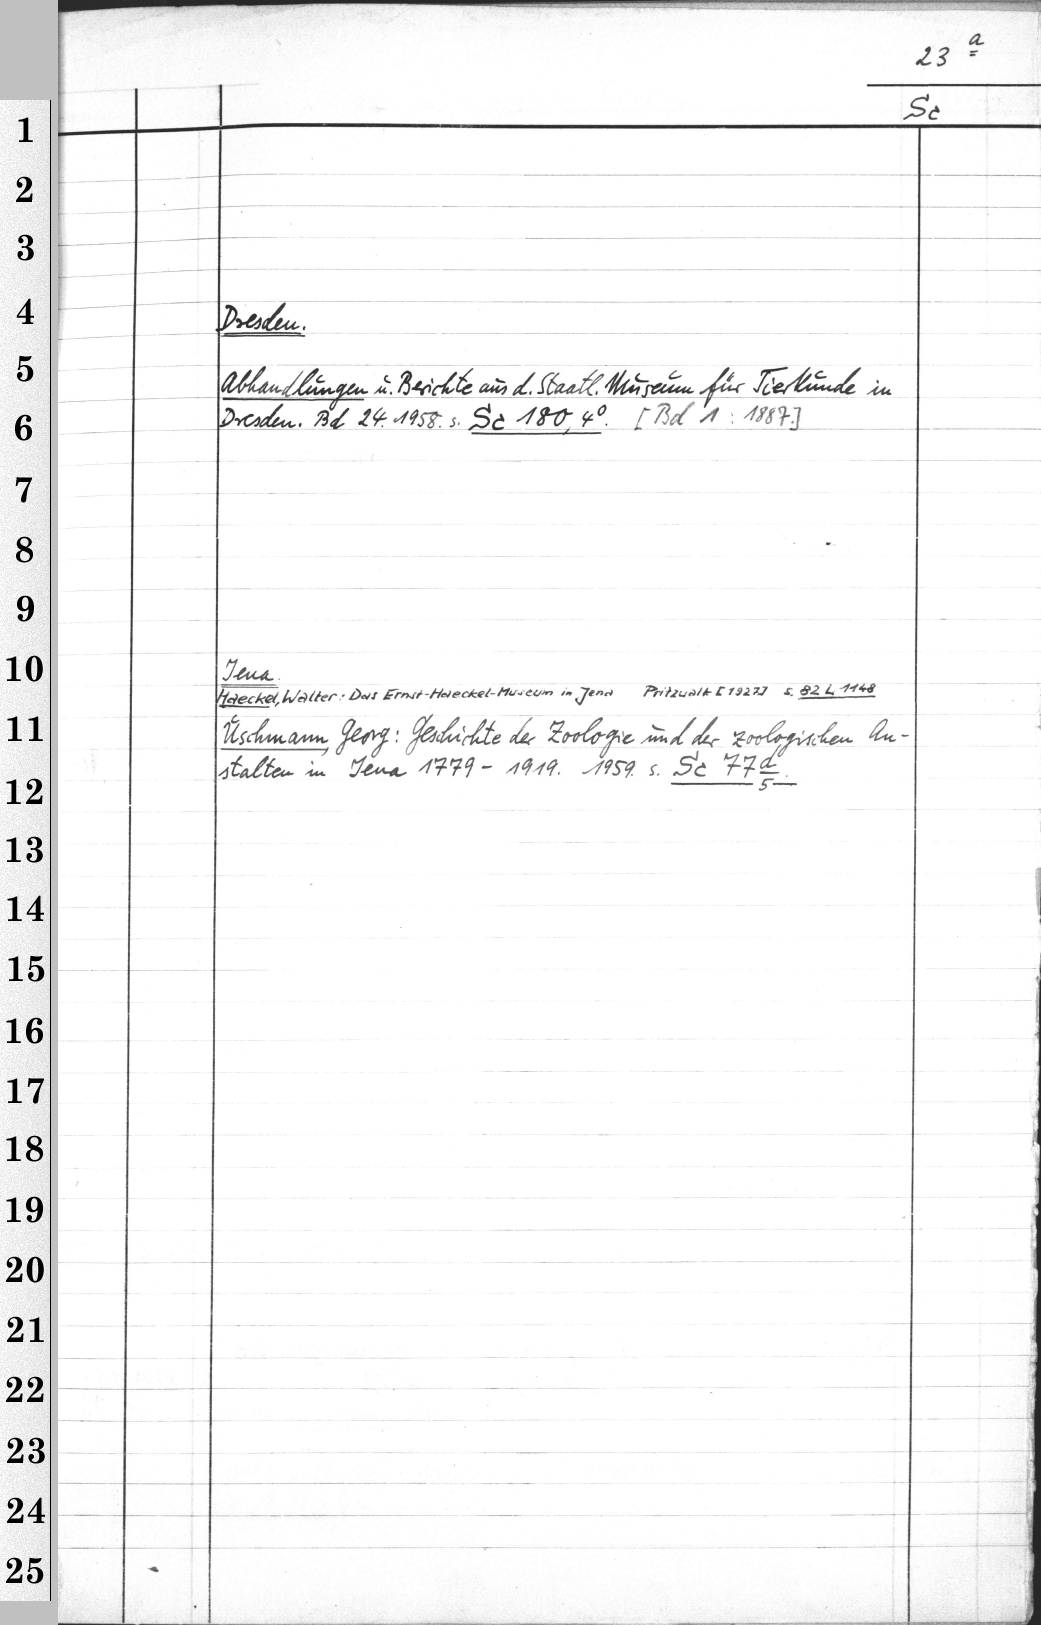 23 a
Sc
1
2
3
4
Dresden.
5
Abhandlungen u. Berichte aus d. Staatl. Museum für Tierkunde in
6
Dresden. Bd 24. 1958. s. Sc 180, 4°. [Bd 1: 1887.]
7
8
9
10
Jena.
Haeckel, Walter: Das Ernst-Haeckel-Museum in Jena Pritzwalk [1927] s. 82 L 1148
11
Uschmann, Georg: Geschichte der Zoologie und der zoologischen An-
stalten in Jena 1779 - 1919. 1959. s. Sc 77 d/5.
12
13
14
15
16
17
18
19
20
21
22
23
24
25